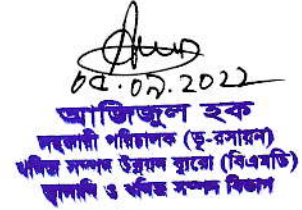 ০৫.০৯.2022
আজিজুল হক
সহকারী পরিচালক (ভূ-রসায়ন)
খনিজ সম্পদ উন্নয়ন ব্যুরো (বিএমডি)
জ্বালানি ও খনিজ সম্পদ বিভাগ